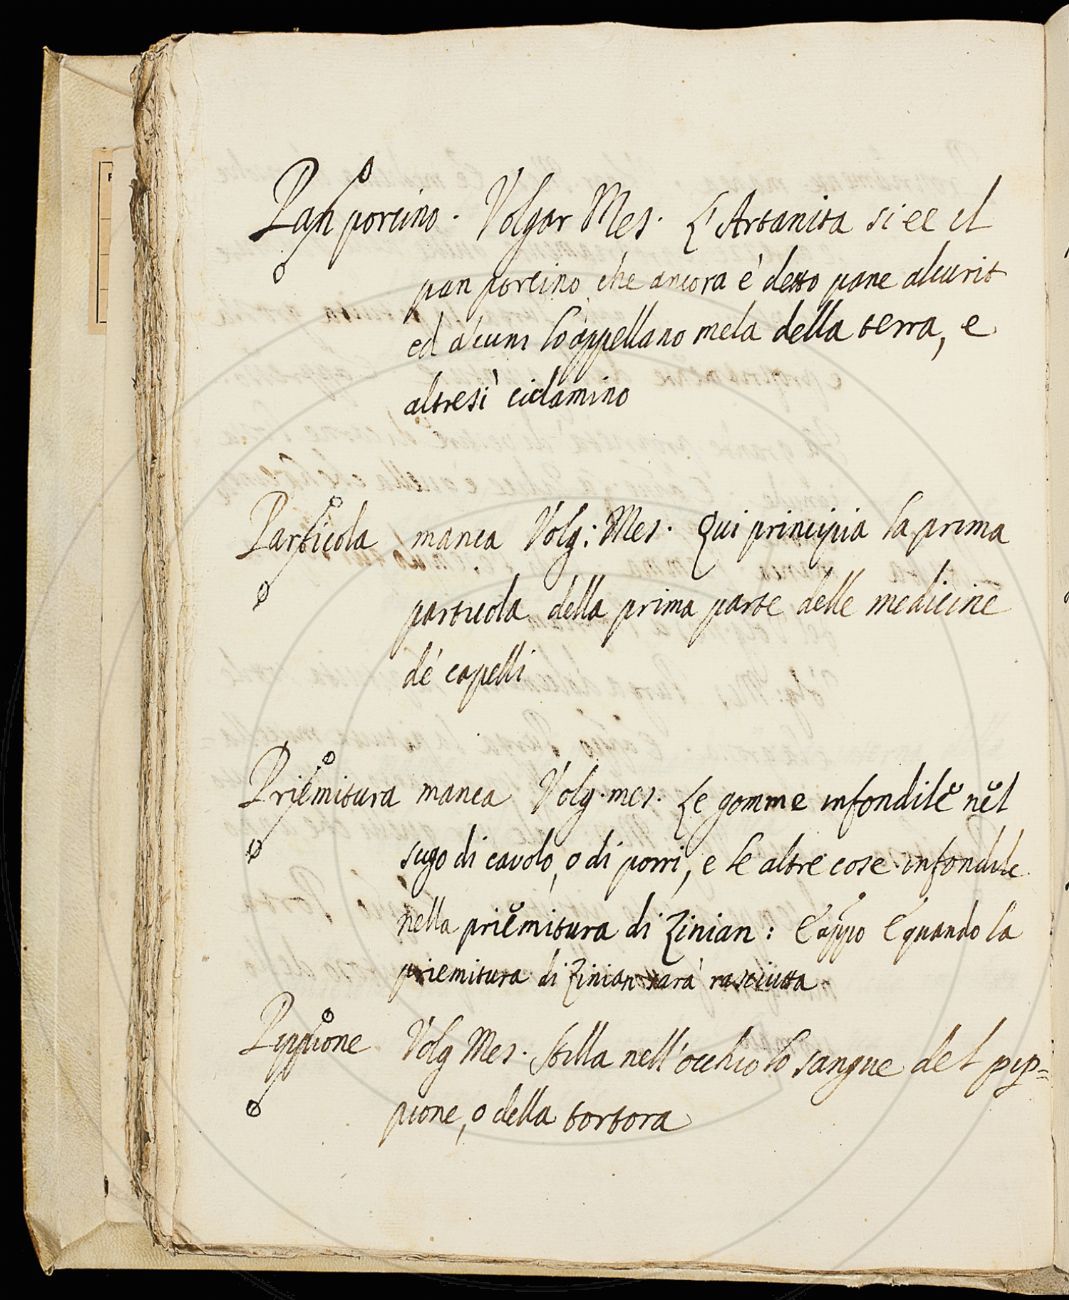 Pan porcino. Volgar Mes. L'Artanita si e e il
pan porcino che ancora è detto pane
ed alcuni lo appellano mela della terra, e
altresì ciclamino
Particola manca Volg: Mes. Qui principia la prima
particola della prima parte delle medicine
de' capelli
Priemitura manca Volg. mes. Le gomme infondile nel
sugo di cavolo, o di porri, e le altre cose infondile
nella priemitura di Zinian: E appo E quando la
priemitura di Zinian sarà rasciutta
Pippione Volg Mes. Stilla nell'occhio lo sangue del pip=
pione, o della tortora